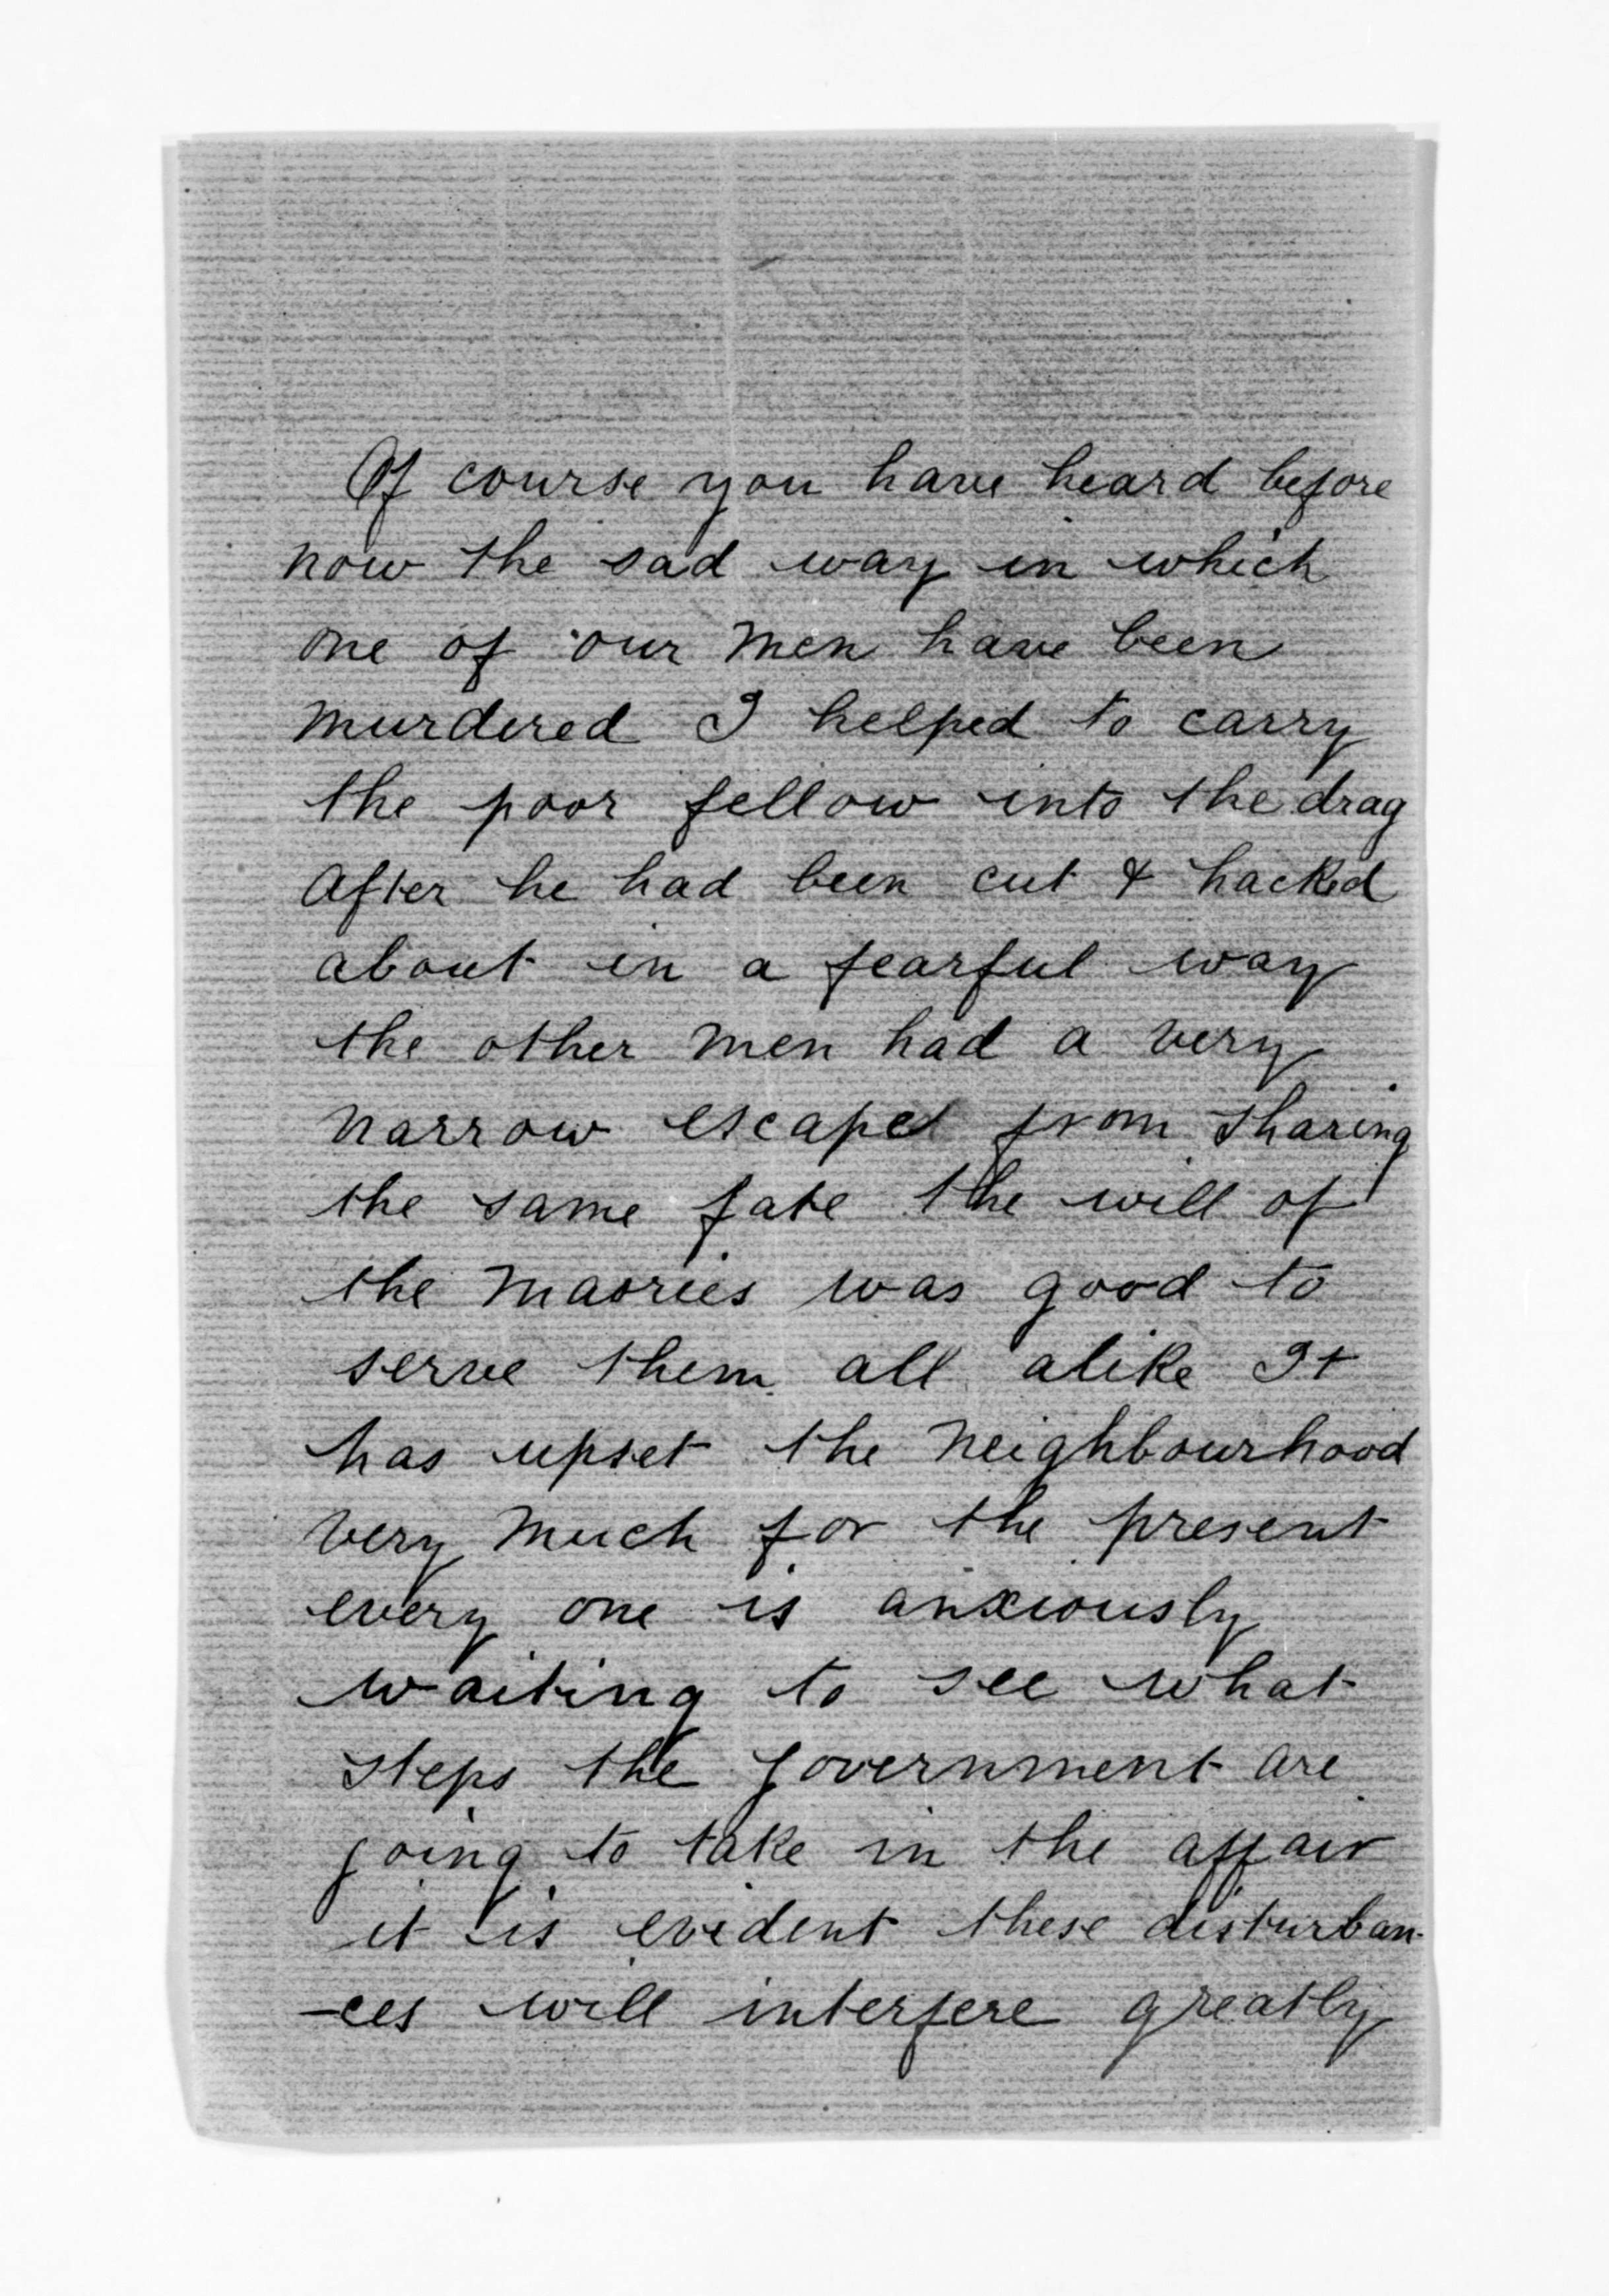 Of course you have heard before
now the sad way in which
one of our men have been
murdered I helped to carry
the poor fellow into the drag
After he had been cut & hacked
about in a fearful way
the other men had a very
narrow escape from sharing
the same fate the will of
the maories was good to
serve them all alike It
has upset the neighbourhood
very much for the present
every one is anxiously
waiting to see what
steps the government are
going to take in the affair
it is evident these disturban-
-ces will interfere greatly